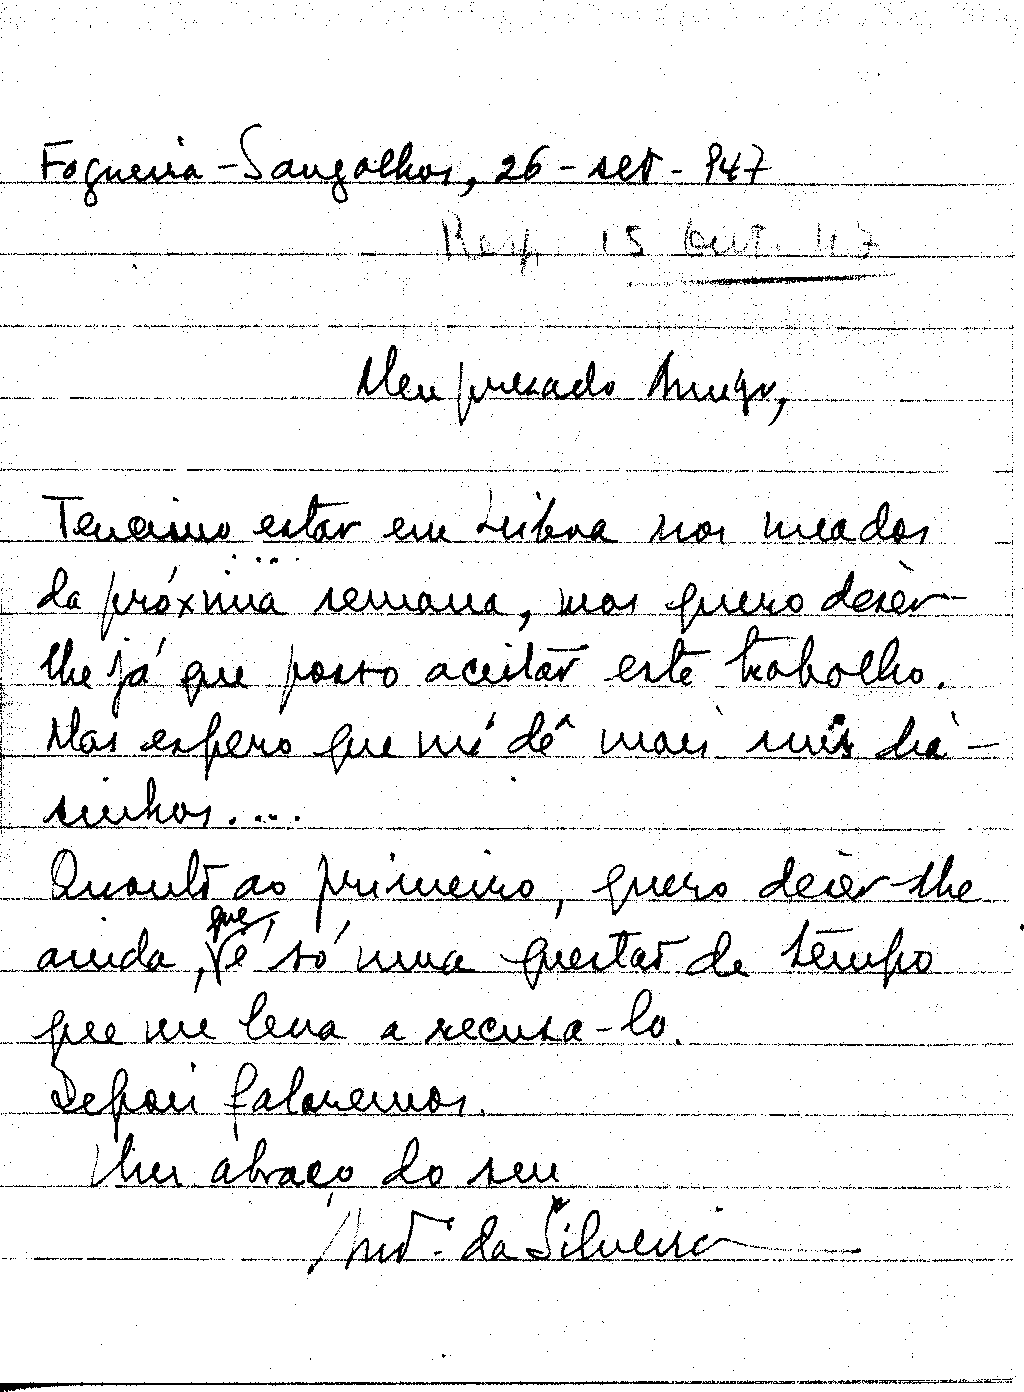 Fogueira - Sangalhos, 26 - set - 947
Resp. 15 Out. 47
Meu presado Amigo,
Tenciono estar em Lisboa nos meados
da próxima semana, mas quero dizer-
lhe já que posso aceitar este trabalho.
Mas espero que me dê mais uns dia-
sinhos....
Quanto ao primeiro, quero dizer-lhe
ainda, que é só uma questão de tempo
que me leva a recusa-lo.
Depois falaremos.
Um abraço do seu
da Silveira